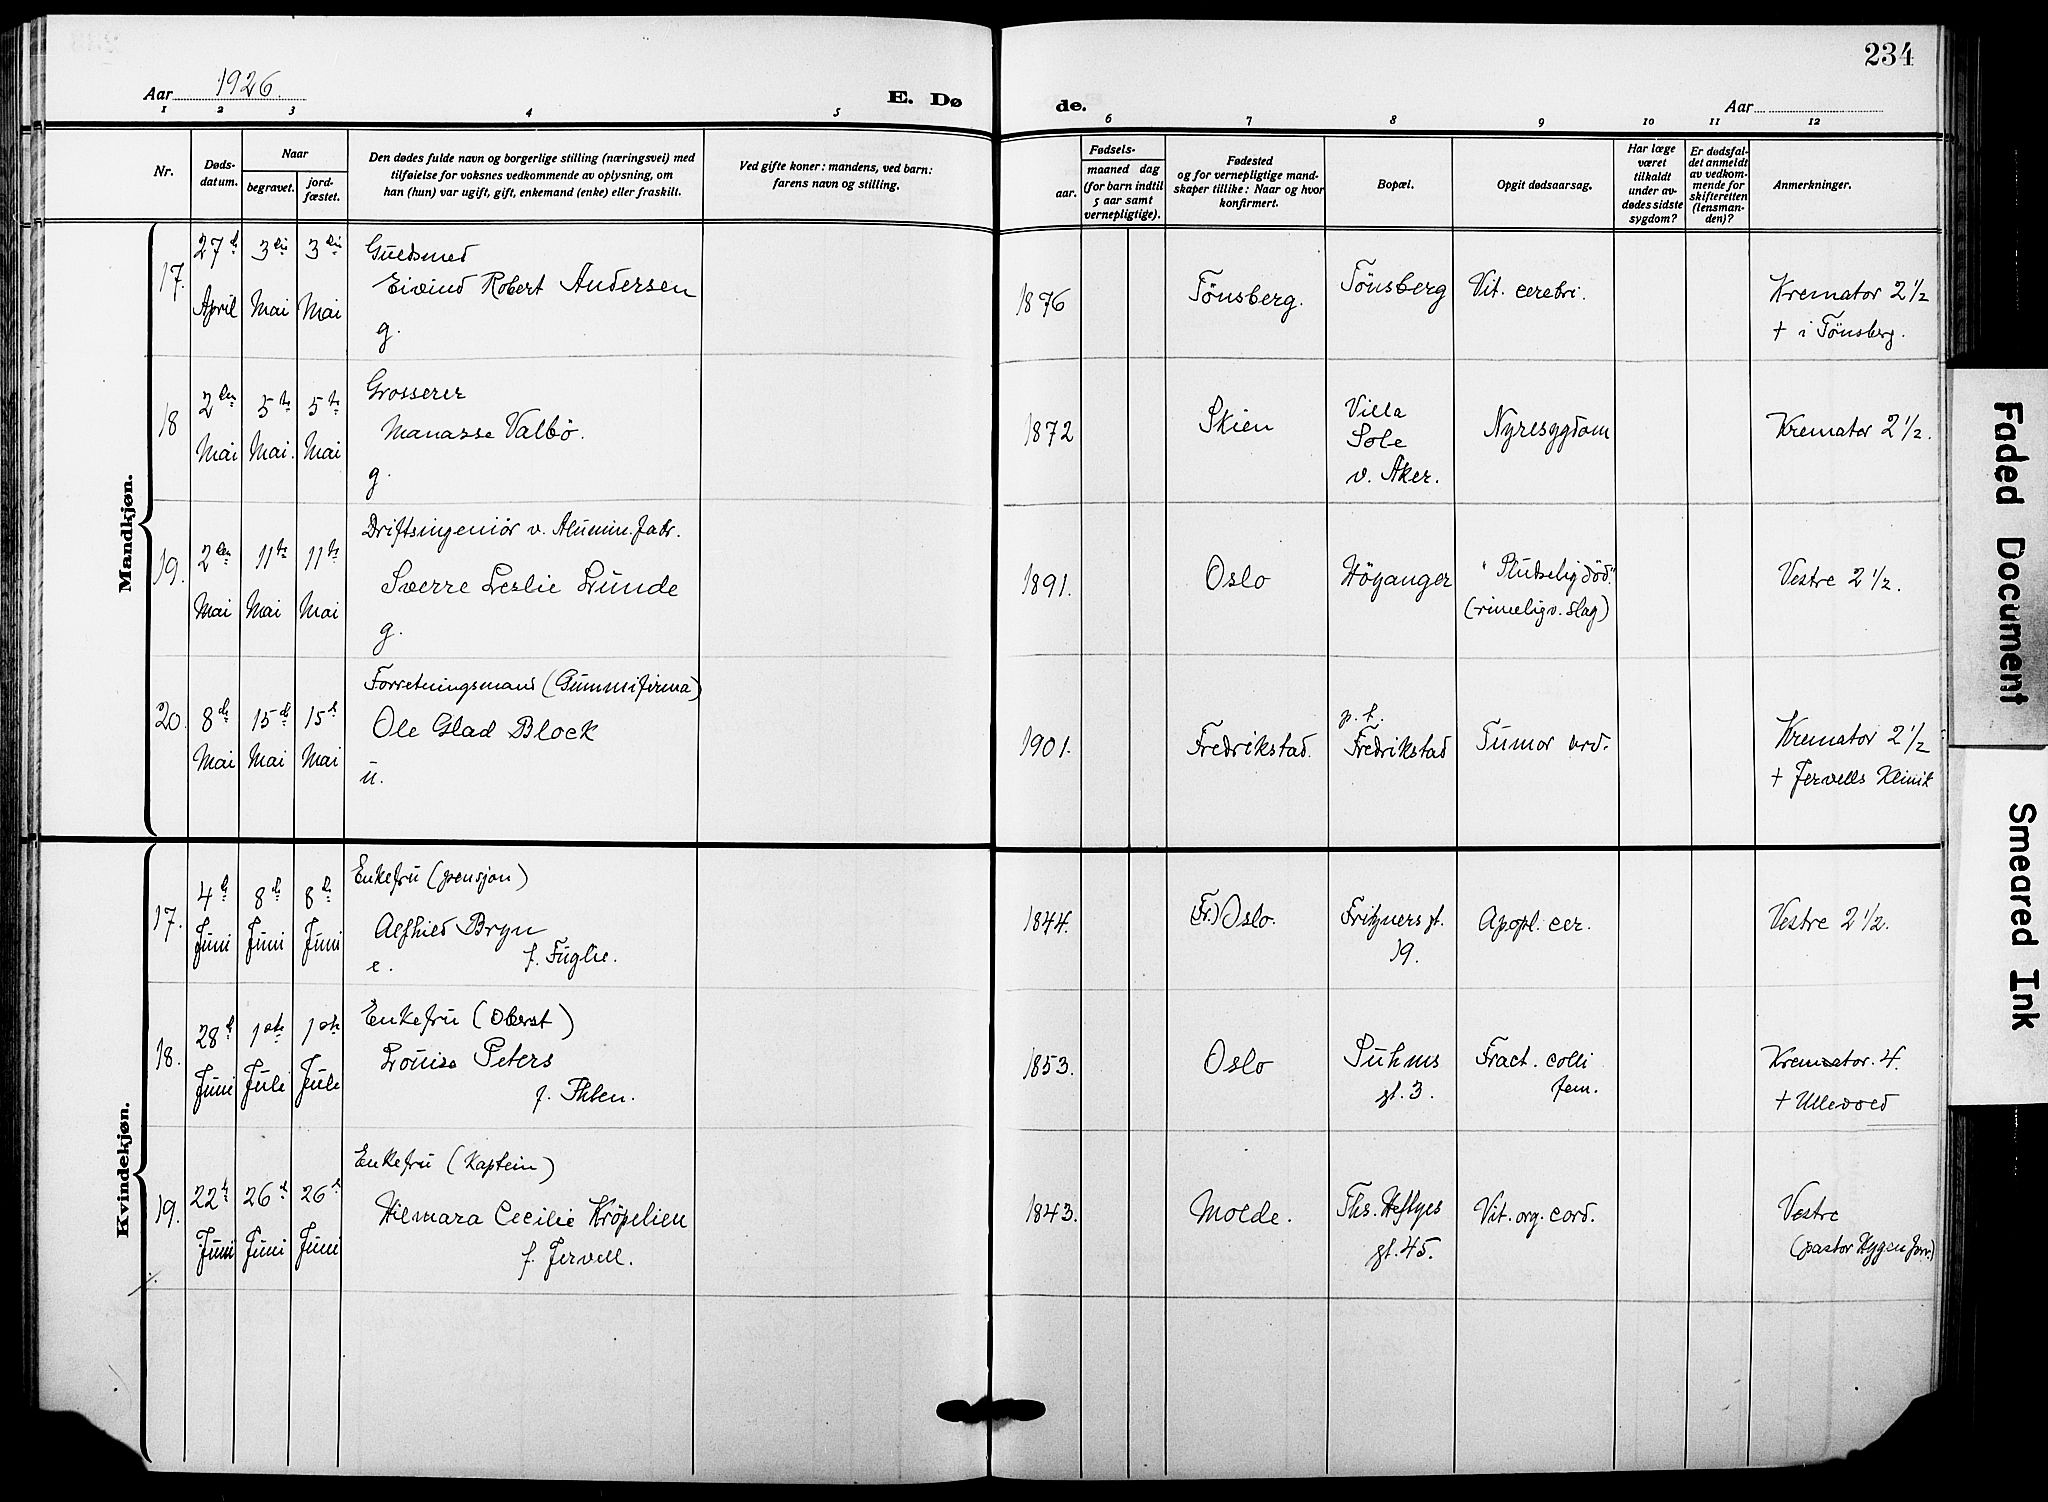 234
Aar 1926.
E. Dø
de.
Aar
1 2 3 4 5
6 7 8 9 10 11 12
Nr.
Døds-
datum.
Naar
begravet.
jord-
fæstet.
Den dødes fulde navn og borgerlige stilling (næringsvei) med
tilføielse for voksnes vedkommende av oplysning, om
han (hun) var ugift, gift, enkemand (enke) eller fraskilt.
Ved gifte koner: mandens, ved barn:
farens navn og stilling.
Fødsels-
aar.
maaned dag
(for barn indtil
5 aar samt
vernepligtige).
Fødested
og for vernepligtige mand-
skaper tillike: Naar og hvor
konfirmert.
Bopæl.
Opgit dødsaarsag.
Har læge
været
tilkaldt
under av-
dødes sidste
sygdom?
Er dødsfal-
det anmeldt
av vedkom-
mende for
skifteretten
(lensman-
den)?
Anmerkninger.
Mandkjøn.
17. 27de April 3die Mai 3die Mai
Guldsmed
Eivind Robert Andersen
g.
1876 Tönsberg. Tönsberg Vit. cerebri.
Kremator 2 1/2
+ i Tönsberg.
18 2den Mai 5te Mai. 5te Mai
Grosserer
Manasse Valbö.
g.
1872 Skien
Villa
Sole
v. Aker.
Nyresygdom
Kremator 2 1/2.
19. 2den Mai 11te Mai 11te Mai
Driftsingeniör v. Alumin. fabr.
Sverre Leslie Lunde
g.
1891. Oslo Höyanger
"Pludselig död."
(rimeligv. slag)
Vestre 2 1/2.
20. 8de Mai 15de Mai 15de Mai
Forretningsmand (Gummifirma)
Ole Glad Block
u.
1901. Fredrikstad.
p. t.
Fredrikstad
Tumor
Kremator 2 1/2
+ Jervells Klinik
Kvindekjøn.
17. 4de Juni 8de Juni 8de Juni
Enkefru (pensjon)
Alfhild Bryn
e. f. Fuglie.
1844. (Fr.) Oslo.
Fritzners gt.
19.
Apopl. cer.
Vestre 2 1/2.
18. 28de Juni 1ste Juli 1ste Juli
Enkefru (Oberst)
Louise Peters
f. Ihlen.
1853. Oslo
Suhms
gt. 3.
Fract. colli
fem.
Kremator. 4.
+ Ullevold
19. 22de Juni 26de Juni 26de Juni
Enkefru (Kaptein)
Hilmara Cecilie Kröpelien
f. Jervell.
1843. Molde.
Ths. Heftyes
gt. 45.
Vit. org. cord.
Vestre
(pastor Hygen forr.)
Faded Document
Smeared Ink